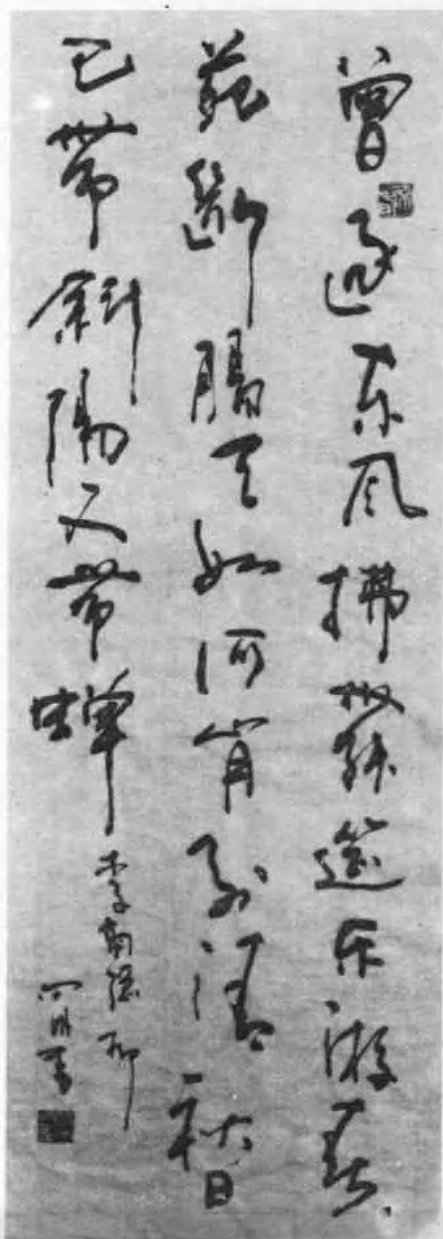 曾逐东风拂舞筵乐游春
苑斷腸天如何肯到清秋日
已帶斜陽又帶蟬
李商隱柳